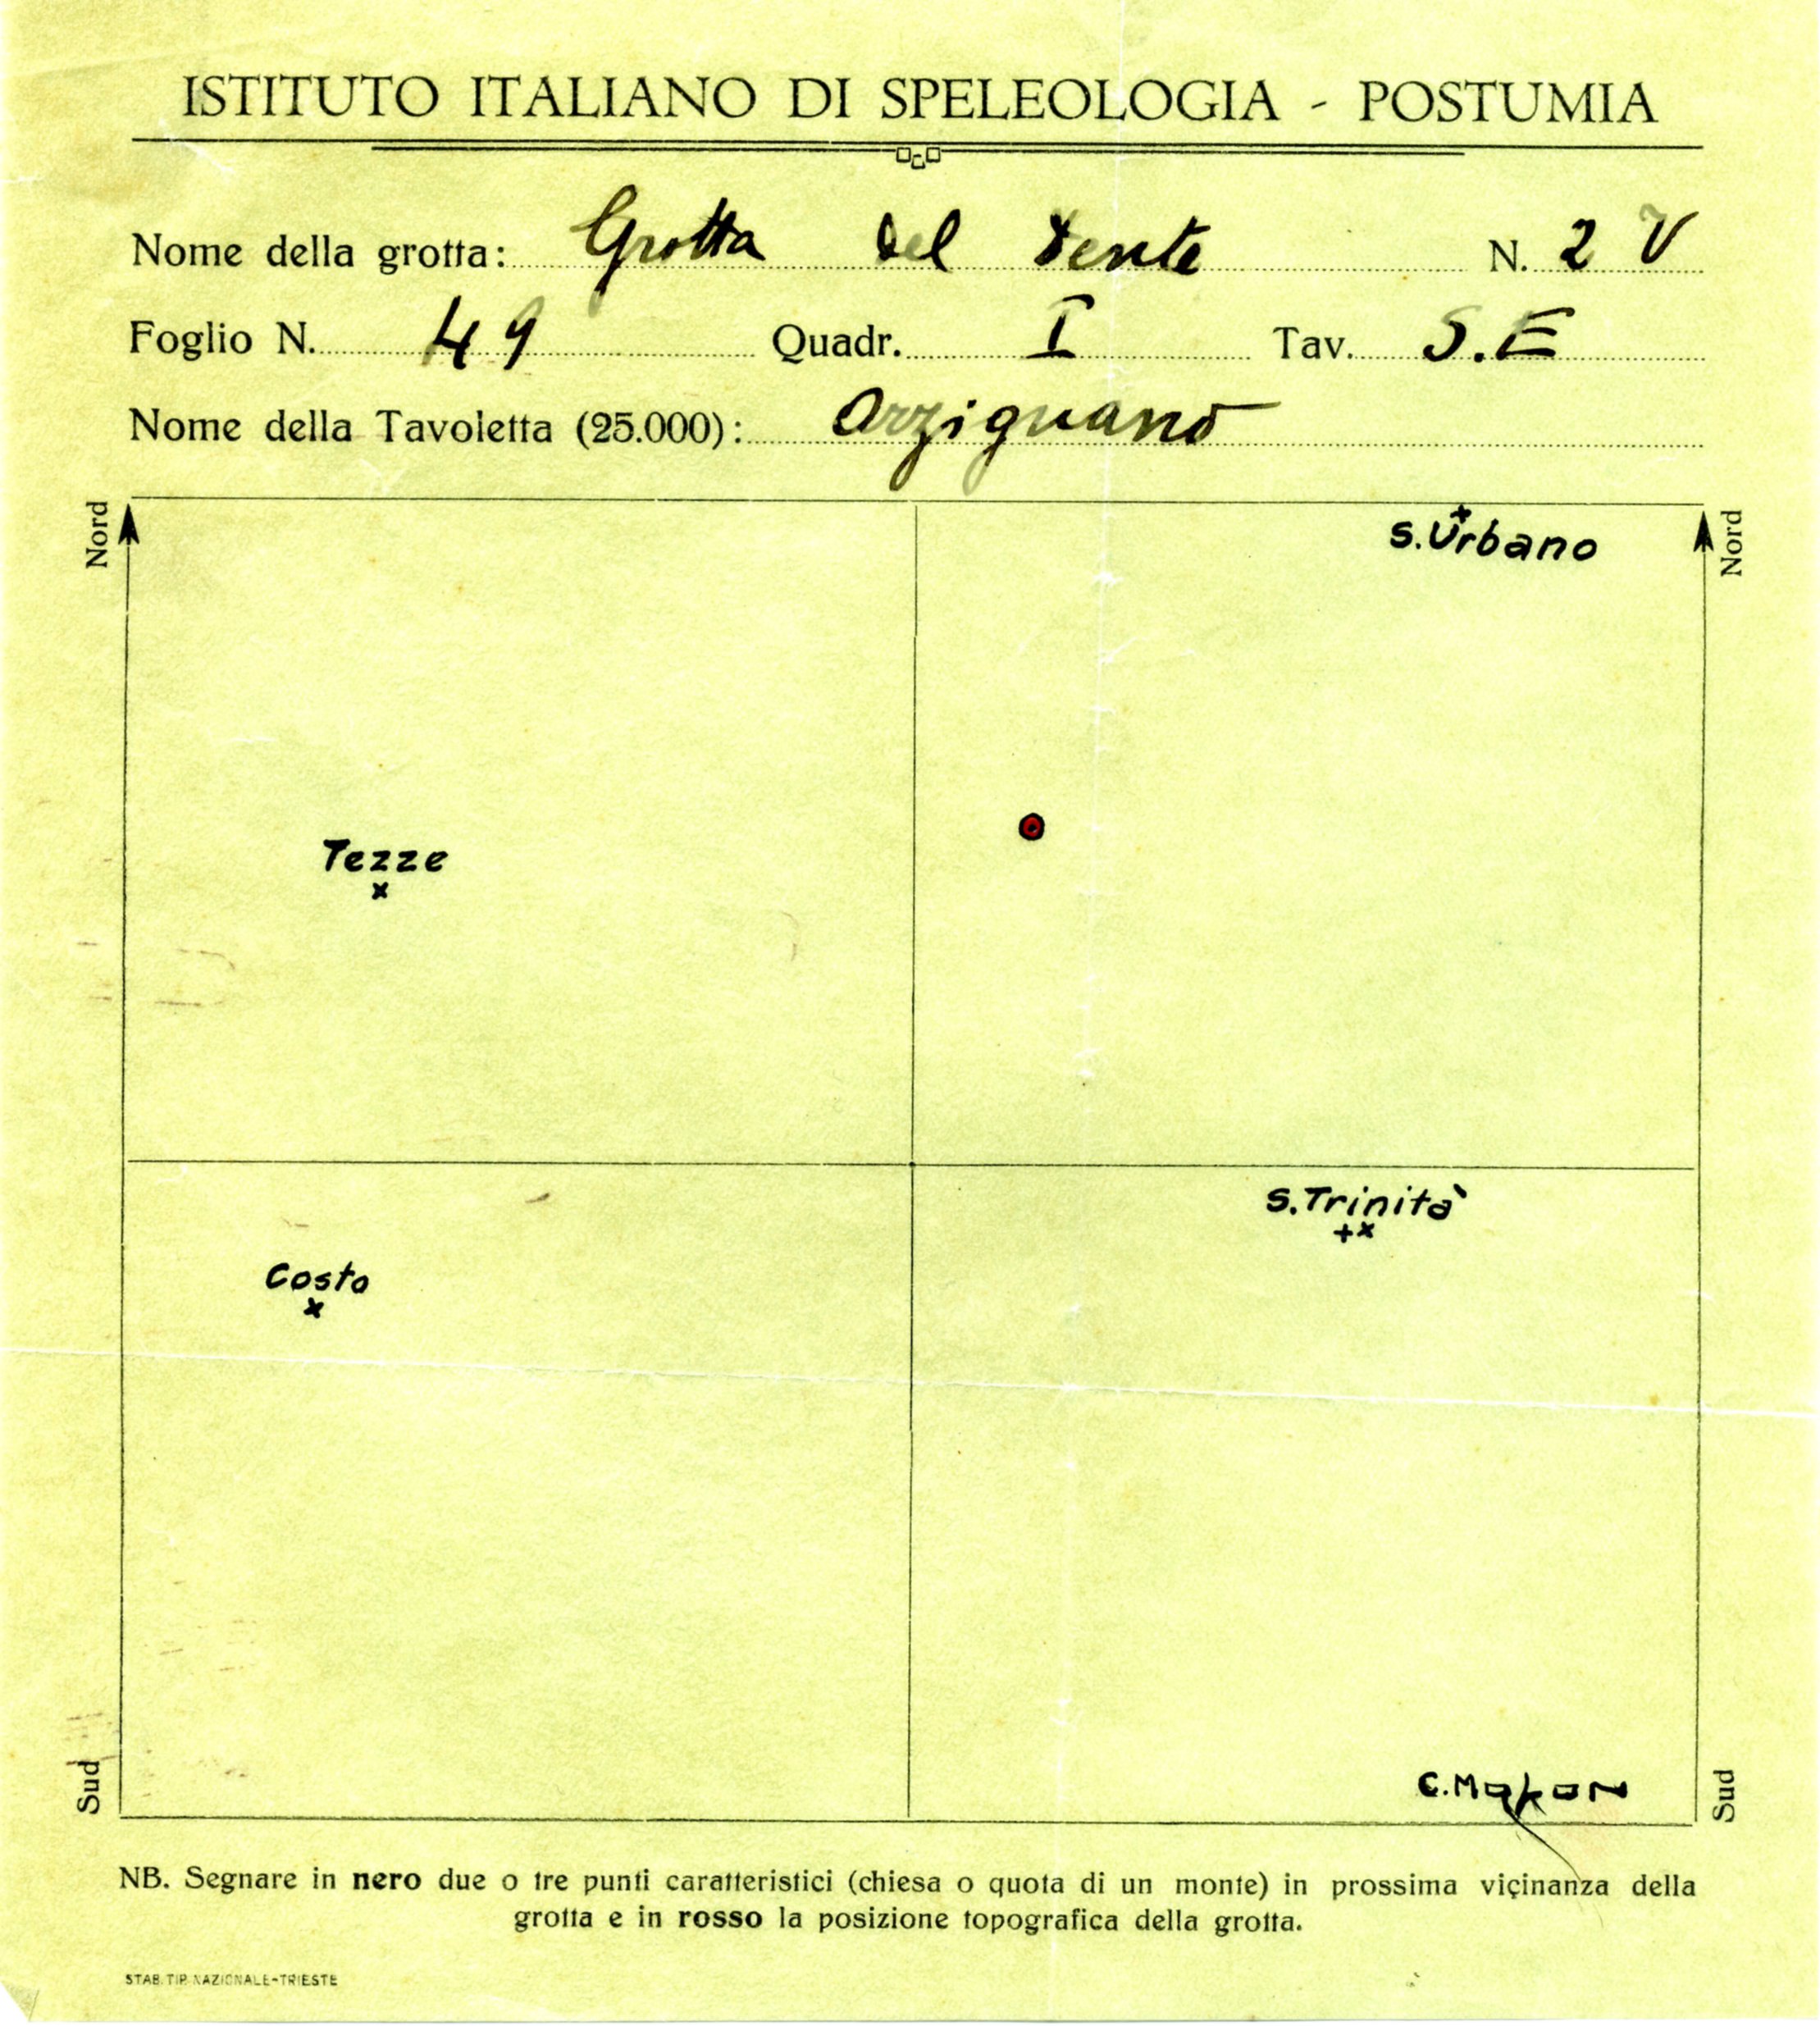 ISTITUTO ITALIANO DI SPELEOLOGIA - POSTUMIA
Nome della grotta: Grotta del Dente N. 2 V
Foglio N. 49 Quadr. I Tav. S.E
Nome della Tavoletta (25.000): Arzignano
Nord
Nord
S. Urbano
Tezze
S. Trinità
Costo
Sud
Sud
NB. Segnare in nero due o tre punti caratteristici (chiesa o quota di un monte) in prossima vicinanza della
grotta e in rosso la posizione topografica della grotta.
STAB. TIP. NAZIONALE-TRIESTE